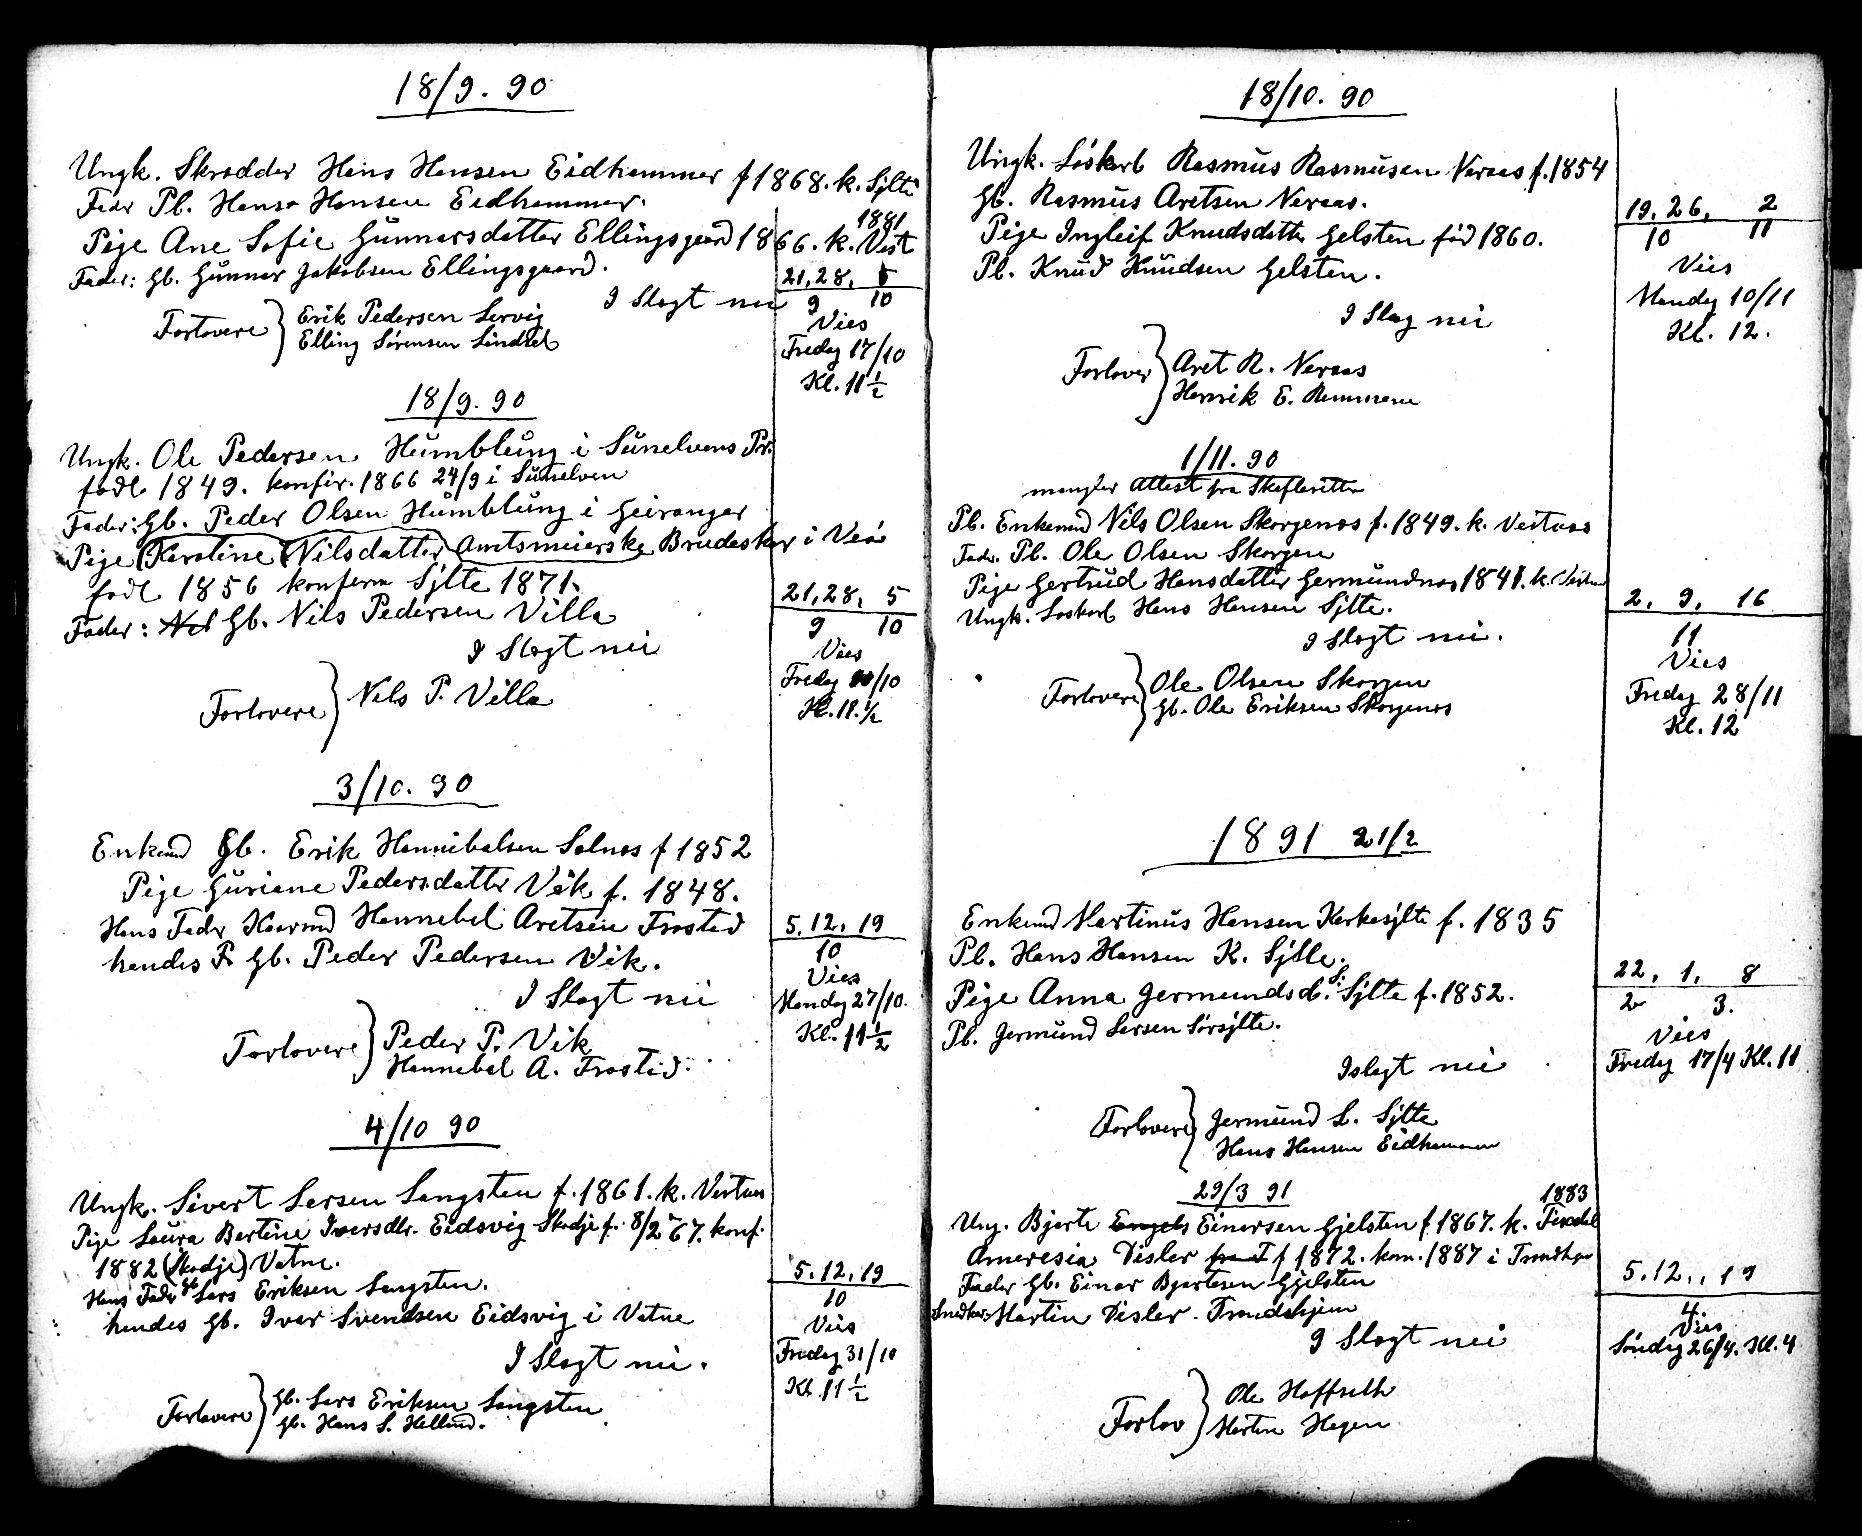 18/9. 90
Ungk. Skrædder Hans Hansen Eidhammer f 1868. k. Sylte
1881
Fadr Pl. Hans Hansen Eidhammer.
Pige Ane Sofie Gunnarsdatter Ellingsgaard 1866. k. Vest
Fader: Gb. Gunnar Jakobsen Ellingsgaard.
I Slægt nei
Forlovere } Erik Pedersen Lervig
Elling Sørensen Lindset
21, 28, 5
9 10
Vies
Fredag 17/10
Kl. 11 1/2
18/9. 90
Ungk. Ole Pedersen Humblung i Sunelvens Pr.
født 1849. konfir. 1866 24/9 i Sunelven
Fader: Gb. Peder Olsen Humblung i Geiranger
Pige (Karoline) (Nilsdatter) Amtsmeierske Brudeskar i Veø
født 1856 konferm Sylte 1871.
Fader: Gb. Nils Pedersen Villa
I Slægt nei
Forlovere } Nils P. Villa
21, 28, 5
9 10
Vies
Fredag /10
Kl. 11. 1/2
3/10. 90
Enkemd Gb. Erik Hannibalsen Solnos f 1852
Pige Guriane Pedersdattr Vik f. 1848.
Hans Fadr Kaarmd Hannebal Aretsen Frostad
hendes F. Gb. Peder Pedersen Vik.
I Slægt nei
Forlovere } Peder P. Vik
Hannebal A. Frostad.
5. 12. 19
10
Vies
Mandag 27/10.
Kl. 11 1/2
4/10 90
Ungk. Sivert Larsen Langsten f. 1861. k. Vestnes
Pige Laura Bertine Iversdtr. Eidsvig Skodje f. 8/2 67. konf.
1882 (Skodje) Vatne.
Hans Fadr Gb Lars Eriksen Langsten.
hendes Gb. Ivar Svendsen Eidsvig i Vatne
I Slægt nei.
Forlovere } Gb. Lars Eriksen Langsten
Gb. Hans L. Helland.
5. 12. 19
10
Vies
Fredag 31/10
Kl. 11 1/2
18/10. 90
Ungk. Løskarl Rasmus Rasmusen Neraas f. 1854
Gb. Rasmus Aretsen Neraas.
Pige Ingleif Knudsdattr Gelsten fød 1860.
Pl. Knud Knudsen Gelsten.
I Slæg nei
Forlover } Aret R. Neraas
Henrik E. Remmem
19, 26, 2
10 11
Vies
Mandag 10/11
Kl. 12.
1/11. 90
mangler Attest fra Skifteretten
Pl. Enkemd Nils Olsen Skorgenes f. 1849. k. Vestnæs
Fadr. Pl. Ole Olsen Skorgen
Pige Gertrud Hansdatter Germundnes 1841. k. Vestn
Ungk. Løskarl Hans Hansen Sylte.
I Slægt nei.
Forlovere } Ole Olsen Skorgen
Gb. Ole Eriksen Skorgenes
2, 9, 16
11
Vies
Fredag 28/11
Kl. 12
1891 21/2
Enkemd Martinus Hansen Kirkesylte f. 1835
Pl. Hans Hansen K. Sylte.
Pige Anna Jermundsd. S: Sylte f. 1852.
Pl. Jermund Larsen Sørsylte.
I slægt nei
Forlovere } Jermund L. Sylte
Hans Hansen Eidhammer
22, 1, 8
2 3.
Vies
Fredag 17/4 Kl. 11
29/3 91
1883
Ung. Bjarte Engels Einarsen Gjelsten f 1867. k.
Ameresia Disler f 1872. kon. 1887 i Trondhm
Fader Gb. Einar Bjartesen Gjelsten
Snedker Martin Disler. Trondhjem
I Slægt nei
Forlov } Ole Hoffseth
Martin Hagen
5. 12., 19
4.
Vies
Søndag 26/4. Kl. 4